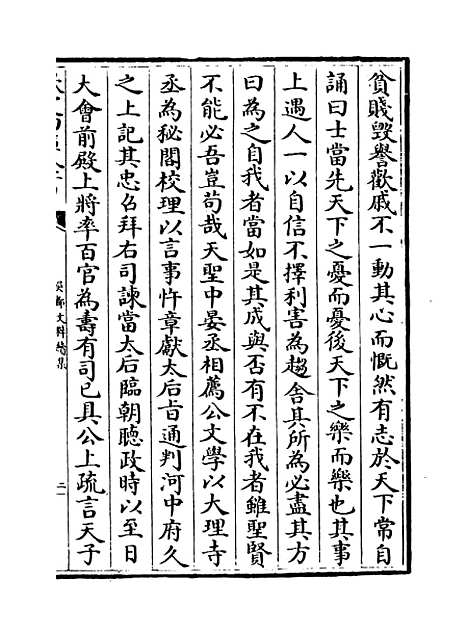 貧賤毀譽歡戚不一動其心而慨然有志於天下常自
誦曰士當先天下之憂而憂後天下之樂而樂也其事
上遇人一以自信不擇利害為趨舍其所為必盡其方
曰為之自我者當如是其成與否有不在我者雖聖賢
不能必吾豈苟哉天聖中晏丞相薦公文學以大理寺
丞為秘閣校理以言事忤章獻太后㫖通判河中府久
之上記其忠召拜右司諫當太后臨朝聽政時以至日
大會前殿上將率百官為壽有司已具公上疏言天子
吳都文粹續集